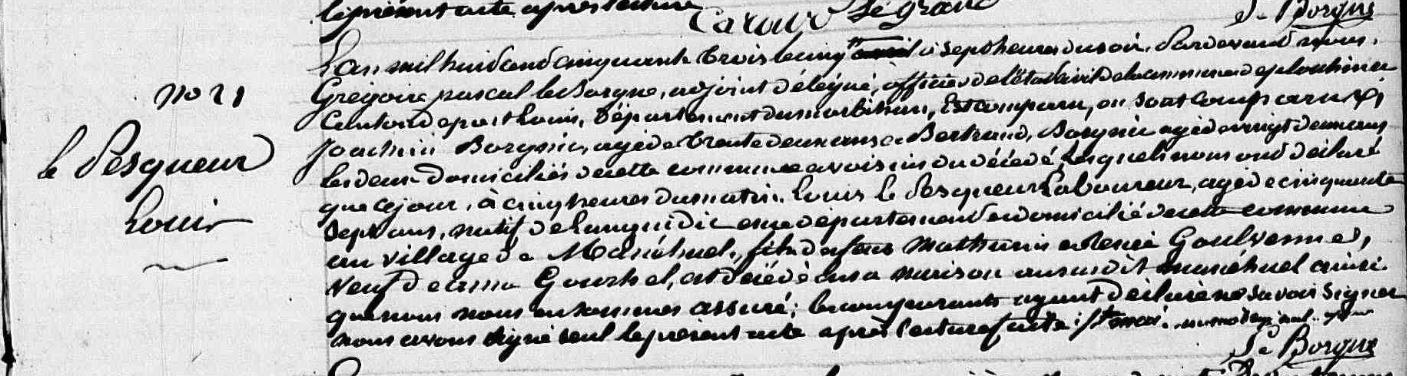 le présent acte après lecture
Le grand
Le Borgne
L'an mil huit cent cinquante trois le cinq mai à sept heures du soir. Pardevant nous.
no 21
Grégoire pascal le Borgne, adjoint délégué, officier de l'état civil de la commune de plouhinec
Canton de port Louis, Département du morbihan, Est comparu, ou sont comparus
Joachim Borgnic, agé de trente deux ans et Bertrand, Borgnic agé de vingt deux ans
le Pesqueur
les deux domiciliés de cette commune et voisins du décédé lesquels nous ont déclaré
que ce jour, à cinq heures du matin. Louis le Pesqueur Laboureur, agé de cinquante
Louis
sept ans, natif de Languidic en ce département et domicilié de cette commune
au village de Manéhuel, fils de feus Mathurin et Goulvenne,
veuf de anna Gourhel, est décédé en sa maison au susdit manéhuel ainsi
que nous nous en sommes assuré; les comparants ayant déclaré ne savoir signer
nous avons signé seul le présent acte après lecture faite un mot rayé nul
Le Borgne